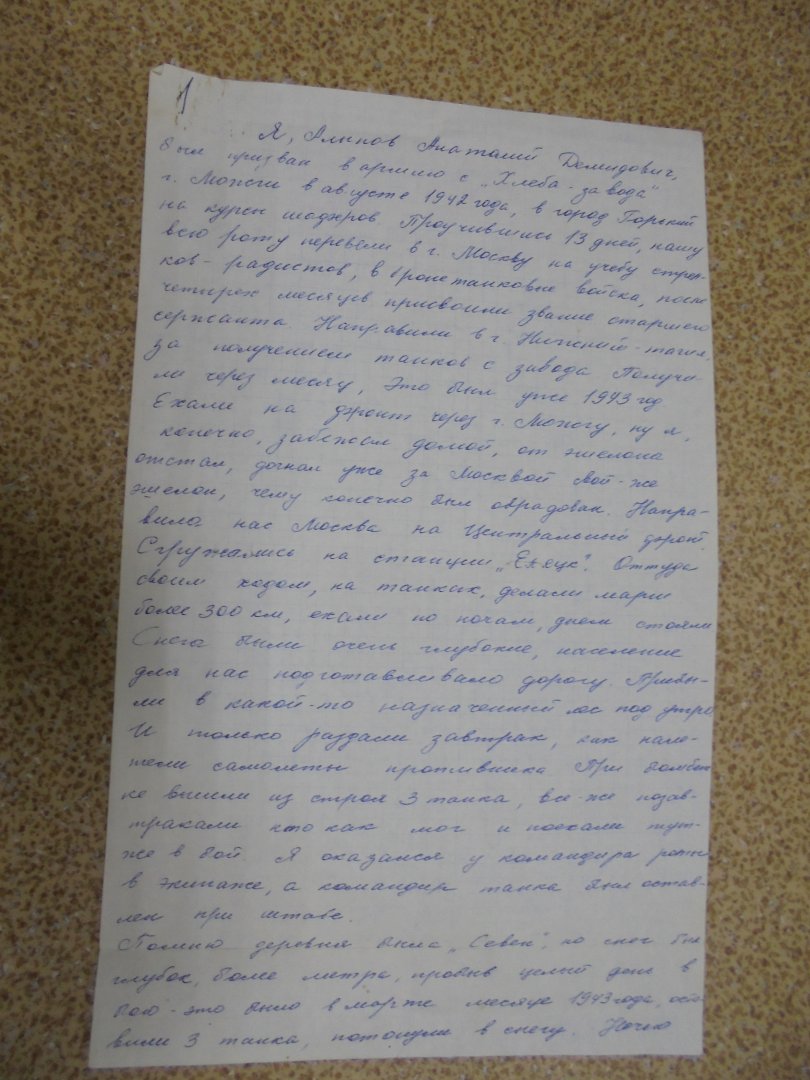 1
Я, Алипов Анатолий Демидович,
был призван в армию с „Хлеба-завода"
г. Можги в августе 1942 года, в город Горький
на курсы шофёров. Проучившись 13 дней, нашу
всю роту перевели в г. Москву на учебу стрел-
ков-радистов, в бронетанковые войска, после
четырех месяцев присвоили звание старшего
сержанта. Направили в г. Нижний-тагил,
за получением танков с завода Получи-
ли через месяц, Это был уже 1943 год.
Ехали на фронт через г. Можгу, ну я,
конечно, забежал домой, от эшелона
отстал, догнал уже за Москвой свой-же
эшелон, чему конечно был обрадован. Напра-
вила нас Москва на Центральный фронт.
Сгружались на станции „Елецк". Оттуда
своим ходом, на танках, делали марш
более 300 км, ехали по ночам, днем стояли
Снега были очень глубокие, население
для нас подготавливало дорогу. Прибы-
ли в какой-то назначенный лес под утро
И только раздали завтрак, как нале-
тели самолеты противника При бомбеж
ке вышли из строя 3 танка, все-же позав-
тракали кто как мог и поехали тут-
же в бой. Я оказался у командира роты
в экипаже, а командир танка был остав-
лен при штабе.
Помню деревня была „Севек", но снег был
глубок, более метра, пробыв целый день в
бою - это было в марте месяце 1943 года, оста
вили 3 танка, потонули в снегу. Ночью